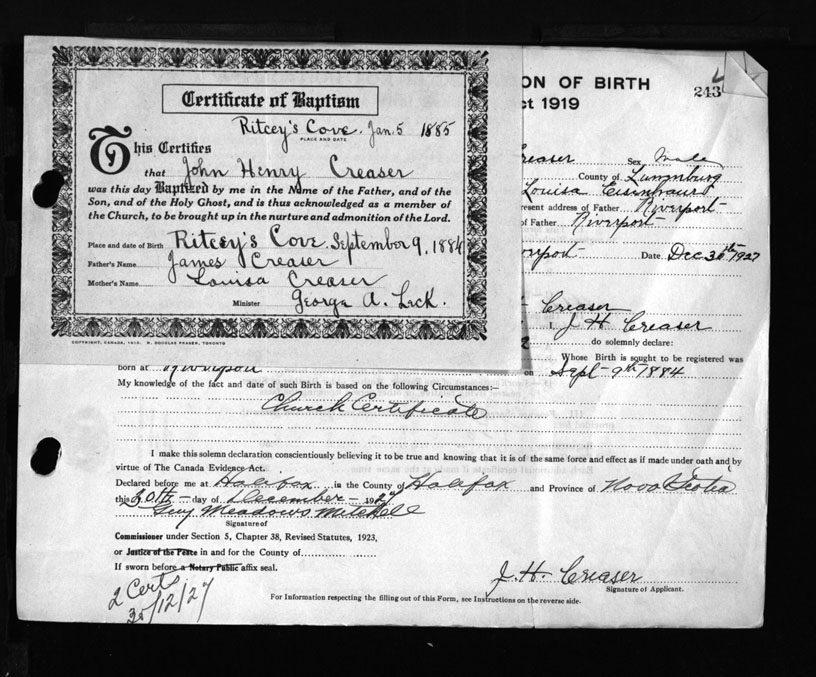 Certificate of Baptism
Ritcey's Cove. Jan. 5 1885
PLACE AND DATE
This Certifies
that John Henry Creaser
was this day Baptized by me in the Name of the Father, and of the
Son, and of the Holy Ghost, and is thus acknowledged as a member of
the Church, to be brought up in the nurture and admonition of the Lord.
Place and date of Birth Ritcey's Cove. September 9, 1884
Father's Name James Creaser
Mother's Name Louisa Creaser
Minister George A. Leck.
COPYRIGHT, CANADA, 1918. R. DOUGLAS FRASER, TORONTO
ON OF BIRTH
ct 1919
243
Creaser Sex Male
County of Lunenburg
Louisa Eisenhauer
resent address of Father Riverport
of Father Riverport
Date Dec 30th 1927
Creaser
I, J H Creaser
do solemnly declare:
Whose Birth is sought to be registered was
born at Riverport on Sept. 9th 1884
My knowledge of the fact and date of such Birth is based on the following Circumstances:—
Church Certificate
I make this solemn declaration conscientiously believing it to be true and knowing that it is of the same force and effect as if made under oath and by
virtue of The Canada Evidence Act.
Declared before me at Halifax in the County of Halifax and Province of Nova Scotia
this 30th day of December 1927
Guy Meadows Mitchell
Signature of
Commissioner under Section 5, Chapter 38, Revised Statutes, 1923,
or Justice of the Peace in and for the County of
If sworn before a Notary Public affix seal.
J. H. Creaser
Signature of Applicant.
2 Certs
30/12/27
For Information respecting the filling out of this Form, see Instructions on the reverse side.